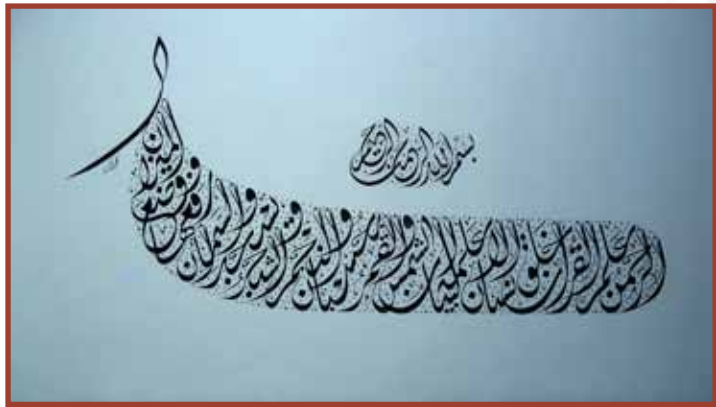 بسم الله الرحمن الرحيم
الرحمن علم القرآن خلق الإنسان علمه البيان الشمس والقمر بحسبان والنجم والشجر يسجدان والسماء رفعها ووضع الميزان